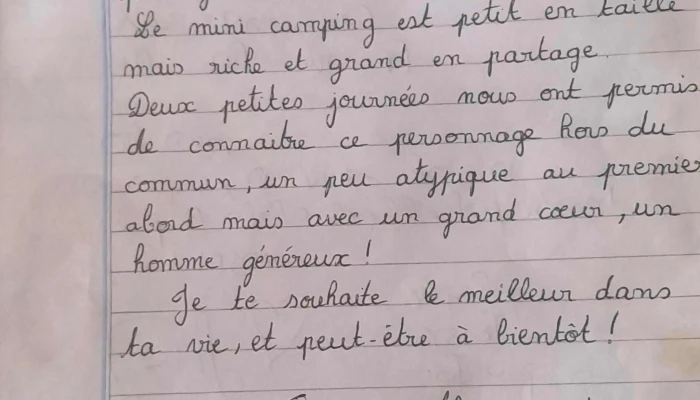 Le mini camping est petit en taille
mais riche et grand en partage.
Deux petites journées nous ont permis
de connaitre ce personnage hors du
commun, un peu atypique au premier
abord mais avec un grand cœur, un
homme généreux !
Je te souhaite le meilleur dans
ta vie, et peut-être à bientôt !